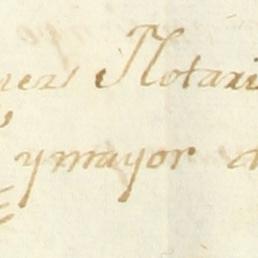 nez Notari
ymayor d